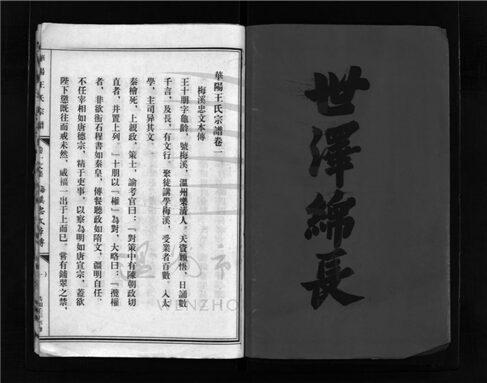 世澤綿長
華陽王氏宗譜卷一
梅溪忠文本傳
王十朋字龜齡，號梅溪，溫州樂清人。天資穎悟，日誦數
千言，及長，有文行，聚徒講學梅溪，受業者百數，入太
學，主司异其文。
秦檜死，上親政，策士，諭考官曰：「對策中有陳朝政切
直者，并置上列。」十朋以「權」為對，大略曰：「攬權
者，非欲衡石程書如秦皇，傳餐聽政如隋文，疆明自任、
不任宰相如唐德宗，精于吏事、以察為明如唐宣宗，蓋欲
陛下懲既往而戒未然，威福一出于上而已。嘗有鋪翠之禁，
華陽王氏宗譜
WENZHO